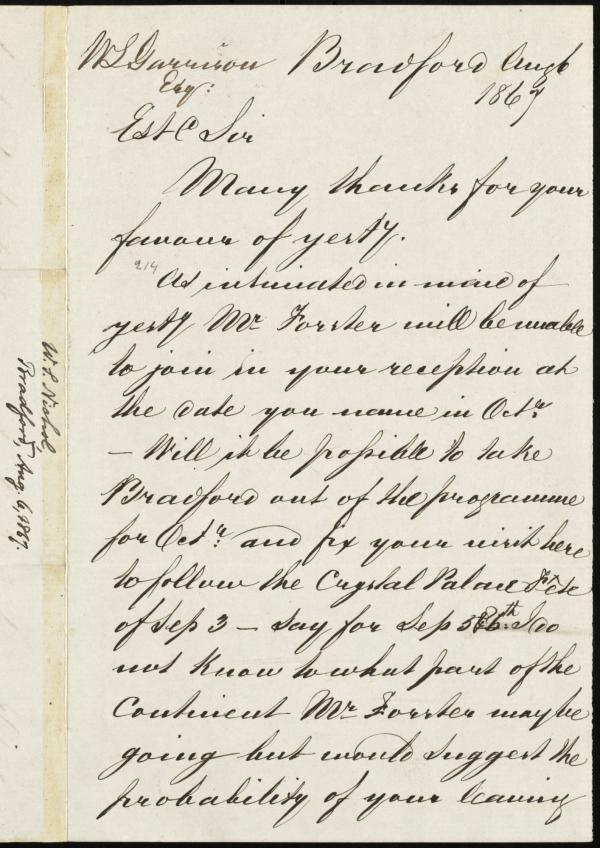 W L Garrison Bradford Aug 6
Esq: 1867
Est d Sir
Many thanks for your
favour of yesty.
214
As intimated in mine of
yesty Mr Forster will be unable
to join in your reception at
the date you name in Octr
– Will it be possible to take
Bradford out of the programme
for Octr: and fix your visit here
to follow the Crystal Palace
of Sep 3 – Say for Sep 5 6th: I do
not know to what part of the
Continent Mr Forster may be
going but would suggest the
probability of your leaving
W. L. Nichol
Bradford, Aug. 6, 1867.